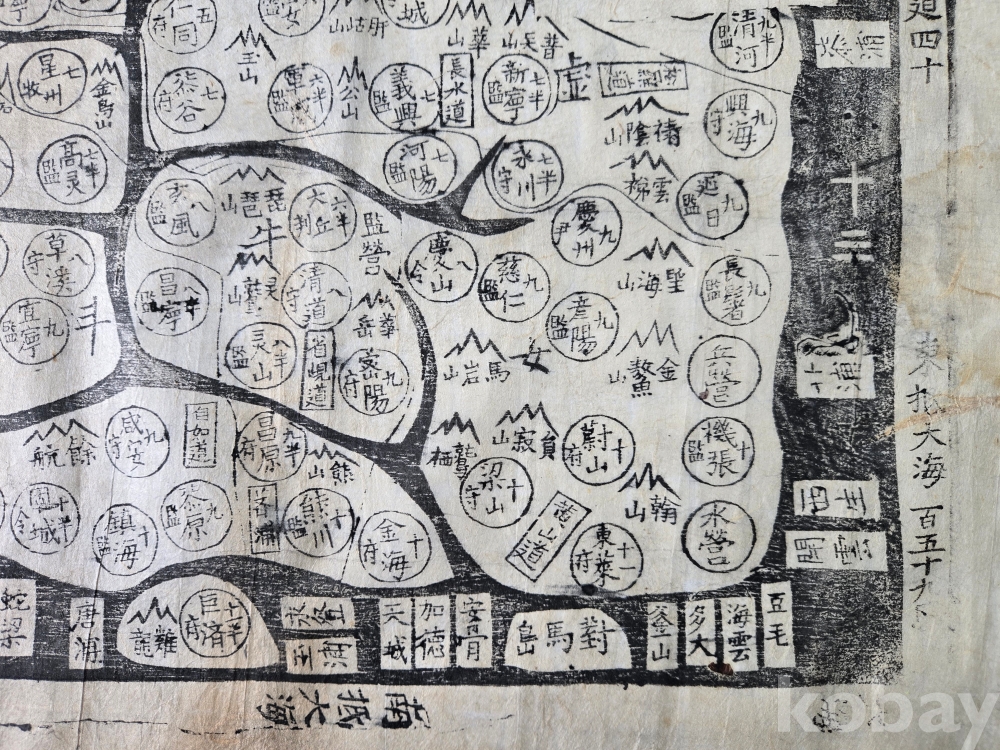 仁同 五
府
玉山
柒谷 七
府
星州 七
牧
金烏山
高灵 七半
監
公山
義興 七
監
長水道
新寧 七半
監
虛
清河 九半
監
興海 九
守
禱陰山
雲梯山
延日 九
監
河陽 七
監
永川 七半
守
慶州
尹
玄風 八
監
琵琶山
大丘 六半
判
監營
牛
慶山
令
慈仁 九
監
聖海山
長鬐 九
監
草溪 八
守
宜寧 九
監
斗
昌寧 八半
監
灵鷲山
清道 八
守
華岳山
彦陽 九
監
金鰲山
兵營
灵山 八半
監
省峴道
密陽 九
府
馬岩山
女
咸安 九
守
自如道
昌原 九半
府
餘航山
熊山
鷲栖山
員寂山
蔚山 十
府
機張 十
監
固城 十半
令
鎮海 十
監
柒原 九
監
熊川 十
監
金海 十
府
梁山 十
守
黃山道
翰山
東萊 十一
府
水營
蛇梁
唐浦
巨濟 十半
府
永登
玉浦
天城
加德
安骨
對馬島
釜山
多大
海雲
豆毛
開雲
西生
包浦
道四十
東抵大海
百五十九
南抵大海
kobay